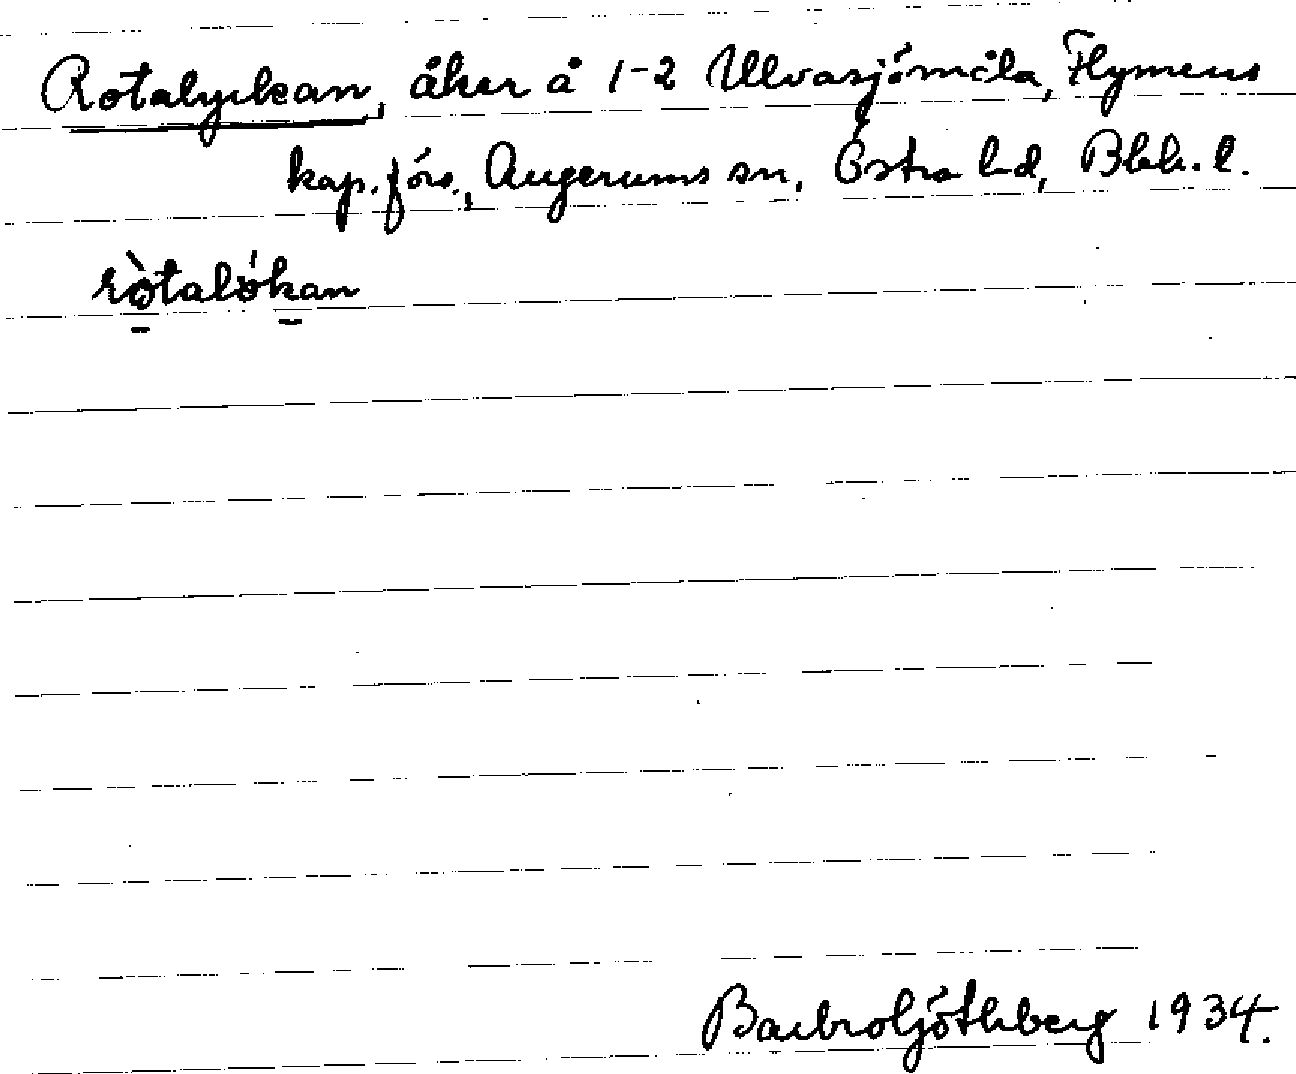 Rotalyckan, åker å 1-2 Ulvasjömåla, Flymens
kap. förs., Augerums sn, Östra hd, Blek. l.
ròtalökan
Barbro Göthberg 1934.